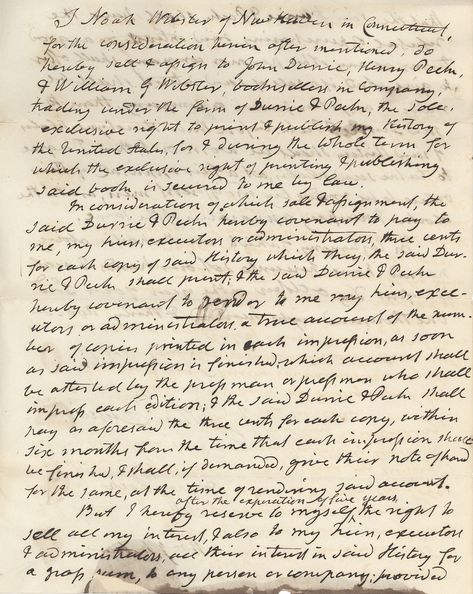 I Noah Webster of New Haven in Connecticut,
for the consideration herein after mentioned, do
hereby sell & assign to John Durrie, Henry Peck,
& William G Webster, booksellers in company,
trading under the firm of Durrie & Peck, the sole,
exclusive right to print & publish my History of
the United States, for & during the whole term for
which the exclusive right of printing & publishing
said book is secured to me by law.
In consideration of which sale & assignment, the
said Durrie & Peck hereby covenant to pay to
me, my heirs, executors or administrators, three cents
for each copy of said History which they, the said Dur-
rie & Peck shall print; & the said Durrie & Peck
hereby covenant to render to me my heirs, exec-
utors or administrators, a true account of the num-
ber of copies printed in each impression, as soon
as said impression is finished; which account shall
be attested by the press man or press men who shall
impress each edition; & the said Durrie & Peck shall
pay as aforesaid the three cents for each copy, within
six months from the time that each impression shall
be finished, & shall, if demanded, give their note of hand
for the same, at the time of rendering said account.
after the expiration of five years,
But I hereby reserve to myself, the right to
sell all my interest, & also to my heirs, executors
& administrators, all their interest in said History for
a gross sum, to any person or company; provided